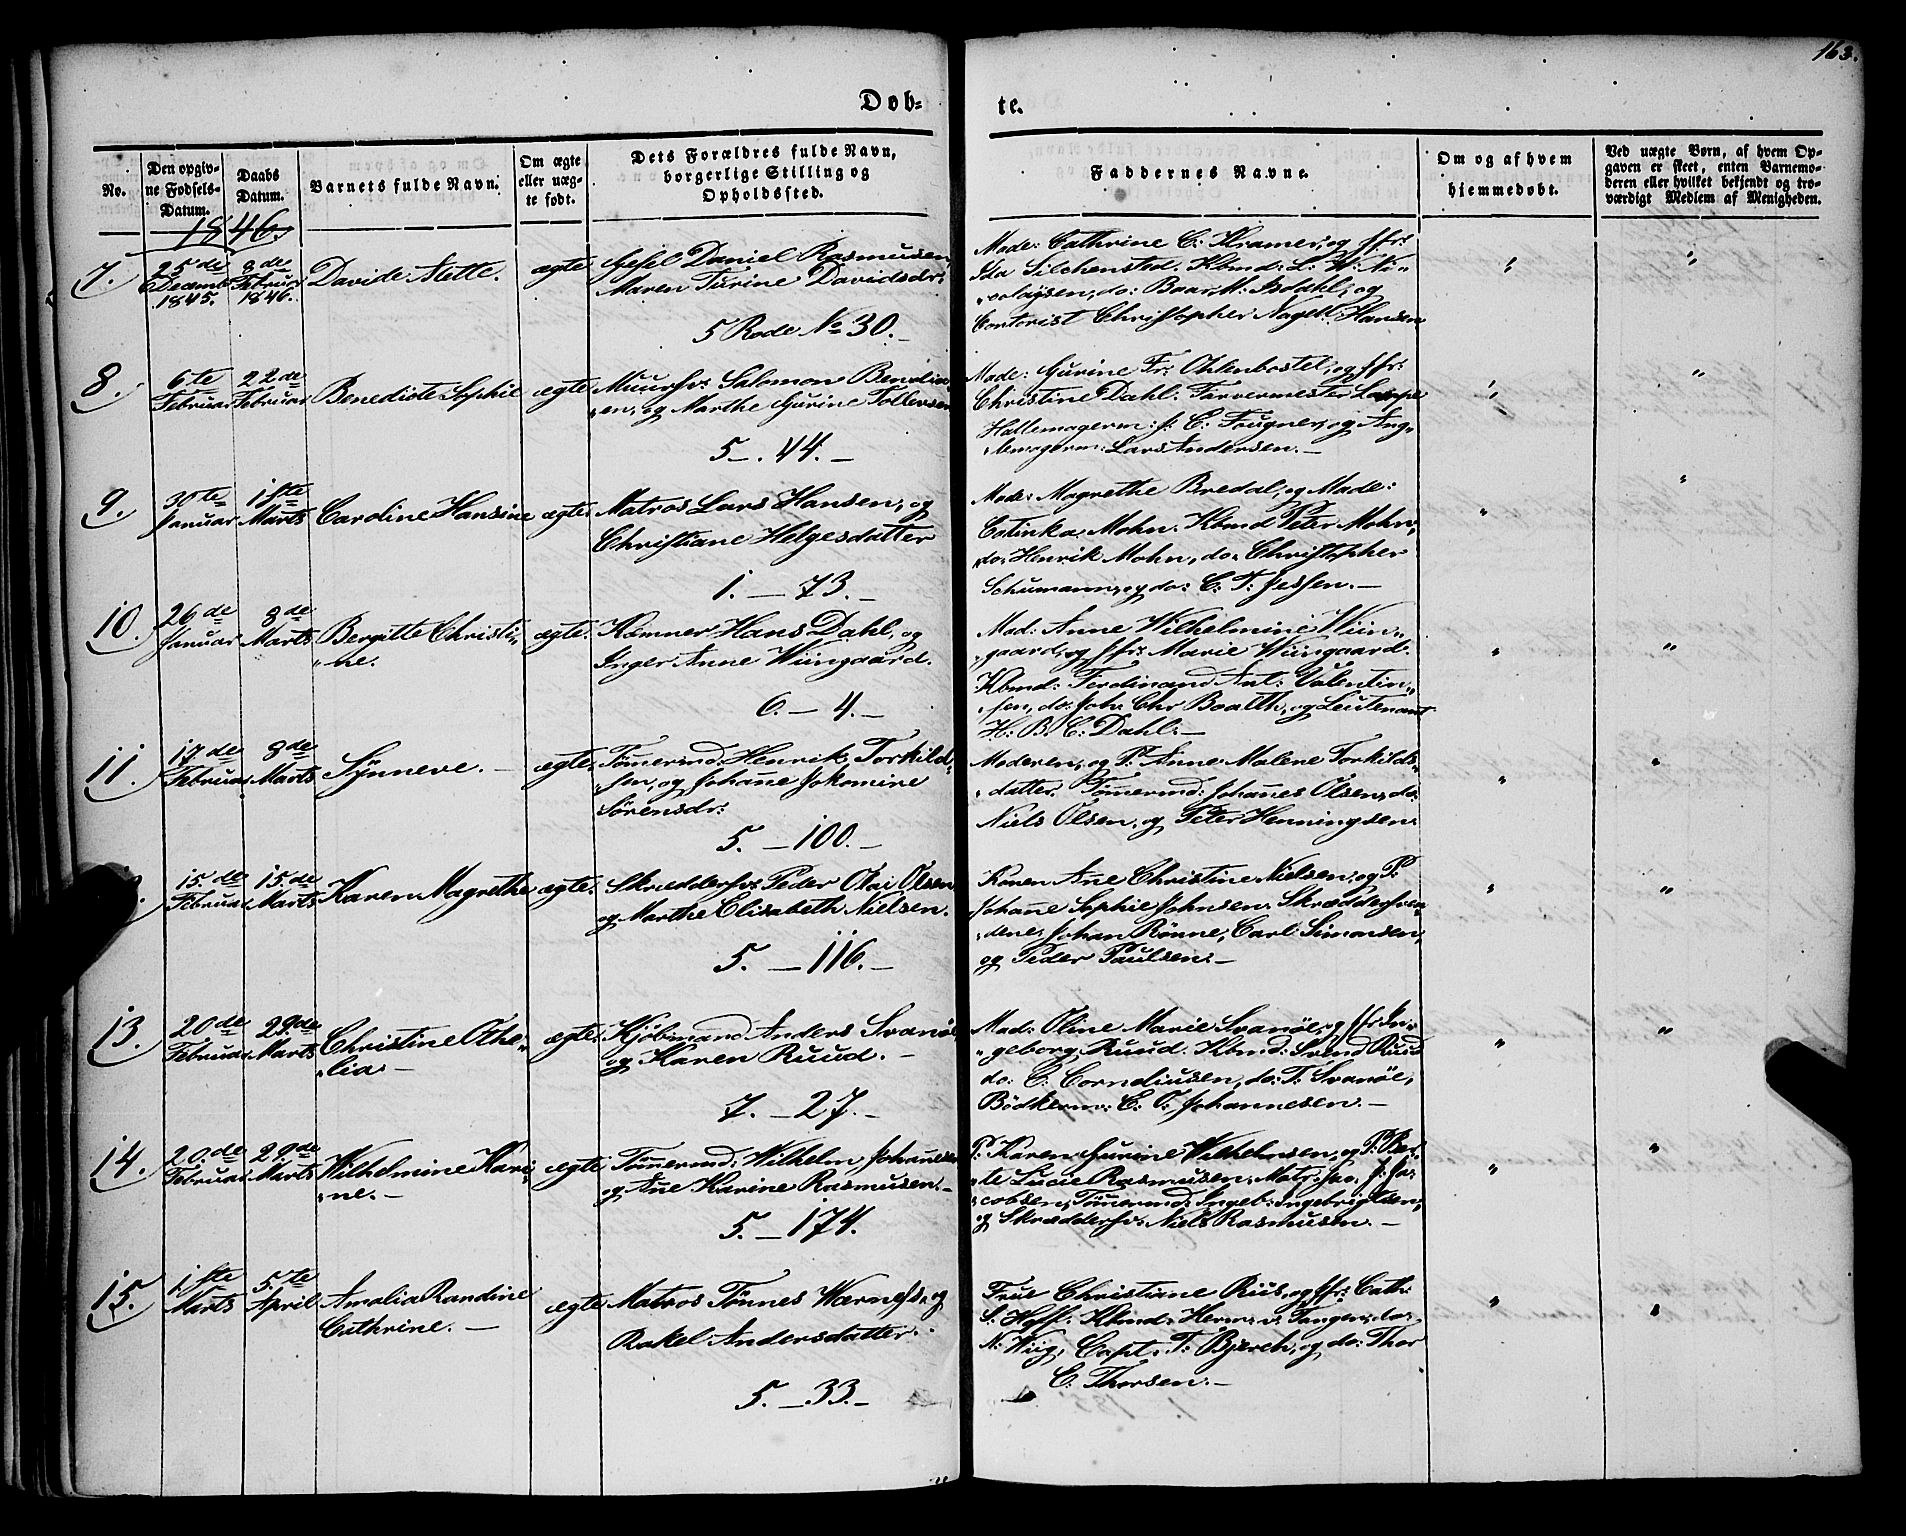 163.
Døb-
te.
No.
Den opgiv-
ne Fødsels-
Datum.
Daabs
Datum.
Barnets fulde Navn.
Om ægte
eller uæg-
te født.
Dets Forældres fulde Navn,
borgerlige Stilling og
Opholdssted.
Faddernes Navne.
Om og af hvem
hjemmedøbt.
Ved uægte Børn, af hvem Op-
gaven er skeet, enten Barnemo-
deren eller hvilket bekjendt og tro-
værdigt Medlem af Menigheden.
1846.
7.
25de
Decemb
1845.
8de
Februar
1846.
Davide Mette.
ægte
Gesel Daniel Rasmusen
Maren Turine Davidsdr:
5 Rode No 30.-
Made: Cathrine C: Kramer, og Jfr:
Ida Kbmd: L: W: Ni-
colaysen, do: M: Isdahl, og
Contorist Christopher Nagell Hansen
8.
6te
Februar
22de
Februar
Benedicte Sophie
ægte
Muursv: Salomon
og Marthe Gurine Tollevsen
5-. 44.-
Made: Gurine Fr: Ohlenbostel, og Jfr:
Christine Dahl. Farvermester
C: Fougner, og
Lars Andersen.-
9.
30te
Januar
1ste
Marts
Caroline Hansine
ægte
Matros Lars Hansen, og
Christiane Helgesdatter
1.-73.-
Made: Magrethe Bredal, og Made:
Cotinka Mohn. Kbmd Peter Mohn,
do: Henrik Mohn, do: Christopher
Schumann, og do: C. T: Jessen.-
10.
26de
Januar
8de
Marts
Bergitte Christi-
ne.
ægte.
Kæmner Hans Dahl, og
Inger Anne Wiingaard.
6.-4.-
Mad: Anne Wilhelmine Wiin-
gaard, og Jfr: Marie Wiingaard.
Kbmd: Ferdinand Ant: Valentin-
sen, do: Joh: Chr Baalth, og Leutenant
H: B: C: Dahl.-
11.
17de
Februar
8de
Marts
Synneve.-
ægte.
Tømermd: Henrik Torkild-
sen, og Johanne Jokomine
Sørensdr:
5.-100.-
Moderen, og P: Anne Malene Torkilds-
datter. Tømermd: Johanes Olsen, do:
Niels Olsen, og Peter Henningsen.
15.de
Februar
15.de
Marts
Karen Magrethe
ægte.
Skræddersv: Peder Olai Olsen
og Marthe Elisabeth Nielsen.
5.-116.-
Karen Ane Christine Nielsen, og P.
Johanne Sophie Johnsen. Skræddersven-
dene, Johan Rönne, Carl Simonsen,
og Peder Paulsen.-
13.
20de
Februar
29de
Marts
Christine Othe-
lia.-
ægte.
Kjöbmand Anders Svanöe
og Karen Ruud.-
7.-27.-
Mad: Oline Marie Svanöe, og Jfr In-
geborg Ruud. Kbmd: Svend Ruud
do: C: Corneliusen, do: T: Svanöe,
Bödkerm: C: O: Johannesen.-
14.
20.de
Februar
29de
Marts
Wilhelmine Kari-
ne.-
ægte
Tömermd: Wilhelm Johannesen
og Ane Karine Rasmusen.-
5.-174.
P. Karen Gurine Wilhelmsen, og P: Ber-
te Lucie Rasmusen. Matr: J: Ja-
cobsen, Tömermd: Ingeb: Ingebrigtsen,
og Skræddersv: Niels Rasmusen.-
15.
1ste
Marts
5te
April
Amalia Randine
Cathrine.-
ægte
Matros Tönnes Wærness, og
Rakel Andersdatter.
5.-33.-
Frue Christiane Riis, og Jfr: Cath:
S: Hoff. Kbmd: Herm: v: Tangen, do:
N: Wiig, Capt: T: Bjerch, og do: Thor
C: Thorsen.-